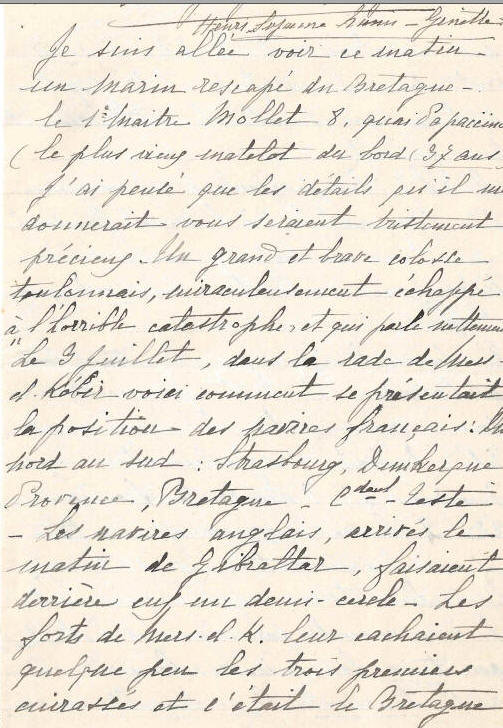 Je suis allée voir ce matin
un marin rescapé du Bretagne -
le 1er Maitre Mollet 8, quai
(le plus vieux matelot du bord (37 ans)
J'ai pensé que les détails qu'il m
donnerait vous seraient tristement
précieux - Un grand et brave colosse
toulonnais, miraculeusement échappé
à l'horrible catastrophe, et qui parle nettemen
"Le 3 Juillet, dans la rade de Mers
el. Kébir voici comment se présentait
la position des navires français : Du
nord au sud : Strasbourg, Dunkerque
Provence, Bretagne - Cdant Teste
- Les navires anglais, arrivés le
matin de Gibraltar, faisaient
derrière eux un demi-cercle - Les
forts de Mers. el. K. leur cachaient
quelque peu les trois premiers
cuirassés et c'était le Bretagne